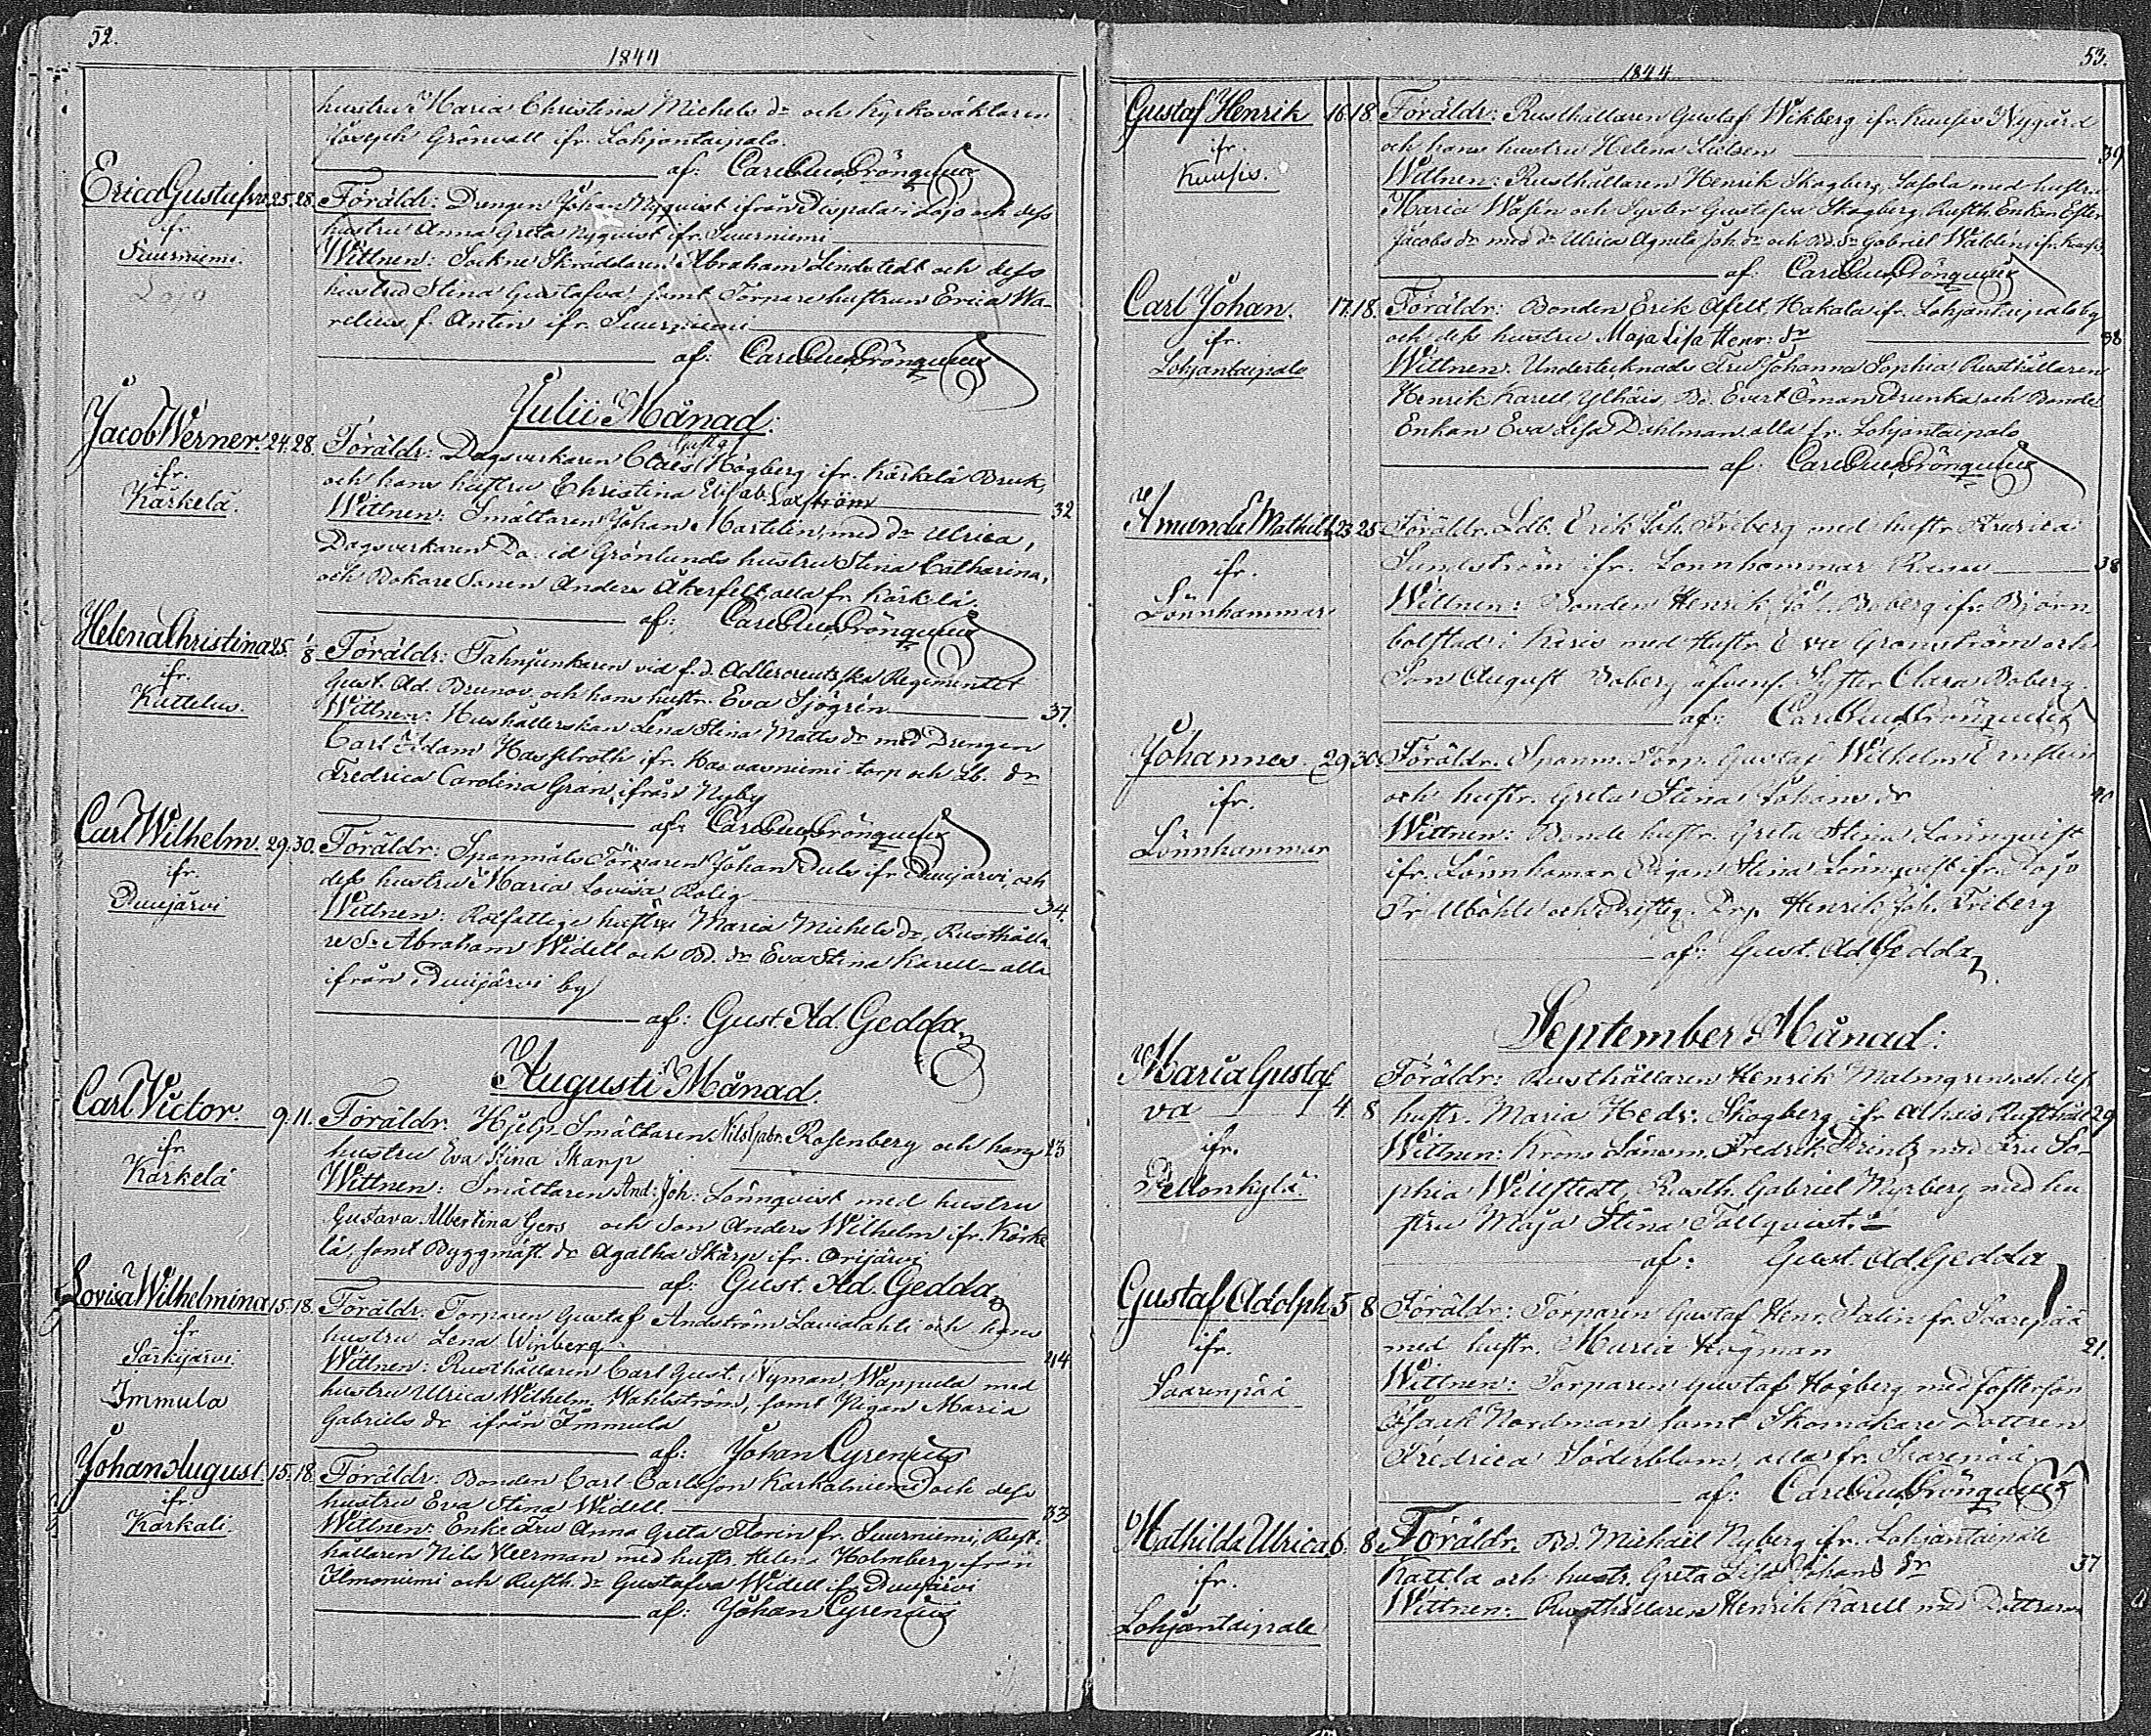 52.
1844
hustru Maria Christina Michels dr och Kyrkovaktaren
Joseph Grönvall ifr. Lohjantaipale.
af: Carl Grönqvist
Erica Gustafva 25. 28. Föräldr: Drengen Johan Nyqvist ifrån Dispala i Lojo och dess
ifr. hustru Anna Greta Nyqvist ifr. Suurniemi
Suurniemi. Wittnen: Sockne Skräddaren Abraham Lindstedt och dess
Lojo hustru Stina Gustafva, samt Torpare hustrun Erica Wa-
relius f. Antin ifr. Suurniemi
af: Carl Grönqvist
Julii Månad:
Jacob Werner. 24. 28. Föräldr: Dagsverkaren Claes Gustaf Högberg ifr. Kärkelä Bruk,
ifr. och hans hustru Christina Elisab. Laxström 32
Kärkelä. Wittnen: Smältaren Johan Martelin, med dr Ulrica,
Dagsverkaren David Grönlunds hustru Stina Catharina,
och Bokare Sonen Anders Åkerfelt alla fr. Kärkelä.
af: Carl Grönqvist
Helena Christina 25. 1/8 Föräldr: Fahnjunkaren vid f. d. Adlercreutzska Regimentet
ifr. Gust. Ad. Brunov, och hans hustr. Eva Sjögrén 37.
Kattelus. Wittnen: Hushållerskan Lena Stina Matts dr med Drengen
Carl Adam Hasselroth ifr. torp och Lb. dr
Fredrica Carolina Gran, ifrån Nyby
af: Carl Grönqvist
Carl Wilhelm. 29. 30. Föräldr: Spanmåls Torparen Johan Dulo ifr. Duujärvi, och
ifr. dess hustru Maria Lovisa Rolig 34.
Duujärvi Wittnen: Rotfattige hustru Maria Michels dr, Rusthålla-
re Sn Abraham Widell och Bd. dr Eva Stina Karell – alla
ifrån Duujärvi by
af: Gust. Ad. Gedda
Augusti Månad.
Carl Victor. 9. 11. Föräldr. Hjelp-Smältaren Nils Gabr. Rosenberg och hans 23
ifr. hustru Eva Stina Skarp
Kärkelä Wittnen: Smältaren And: Joh: Lönnqvist med hustru
Gustava Albertina Gers och Son Anders Wilhelm ifr. Kärke
lä, samt Byggmäst. dr Agatha Skarp ifr. Orijärvi
af: Gust. Ad. Gedda
Lovisa Wilhelmina 15. 18. Föräldr. Torparen Gustaf Andström Lavialahti och hans
ifr. hustru Lena Winberg 44
Särkijärvi. Wittnen: Rusthållaren Carl Gust. Nyman Wappula med
Immula hustru Ulrica Wilhelm. Wahlström, samt Pigan Maria
Gabriels dr ifrån Immula
af: Johan Cyrenius
Johan August. 15. 18. Föräldr. Bonden Carl Carlsson Karkalniemi och dess
ifr. hustru Eva Stina Widell. 33
Karkali. Wittnen: Enke Fru Anna Greta Florin fr. Suurniemi, Rust-
hållaren Nils Weerman med hustr. Helena Holmberg ifrån
Ilmoniemi och Rusth. dr Gustafva Widell ifr. Duujärvi
af: Johan Cyrenius
53.
1844
Gustaf Henrik 16. 18. Föräldr: Rusthållaren Gustaf Wikberg ifr. Kuusis Nygård
ifr. och hans hustru Helena 39
Kuusis. Wittnen: Rusthållaren Henrik Skogberg, Lasola med hustru
Maria Wasen och Syster Gustafva Skogberg, Rusth. Enkan Ester
Jacobs dr med dr Ulrica Agneta Joh. dr och Bd. Sn Gabriel Waldén, ifr. Kuusis
af: Carl Grönqvist
Carl Johan. 17. 18. Föräldr: Bonden Erik Afell, Hakala ifr. Lohjantaipale by
ifr. och dess hustru Maja Lisa Henr: dr 38
Lohjantaipale Wittnen: Undertecknads Fru Johanna Sophia, Rusthållaren
Henrik Karell Ylhäis, Bd. Evert Öman Drunka, och Bonde
Enkan Eva Lisa Dahlman alla fr. Lohjantaipale
af: Carl Grönqvist
Amanda Mathild. 23. 25 Föräldr. Ldb. Erik Joh. Friberg med hustr.
ifr. Sundström ifr. Lönnhammar 38
Lönnhammar Wittnen: Bonden Henrik Joh. Boberg ifr. Björn
bolstad i Karis med Hustr. Eva Granström och
Son August Boberg äfvens. Syster Clara Boberg.
af: Carl Grönqvist
Johannes. 29. 30. Föräldr. Spanm. Torp. Gustaf Wilhelm
ifr. och hustr. Greta Stina Johans dr 40
Lönnhammar Wittnen: Bonde hustr. Greta Stina Lönnqvist
ifr. Lönnhamar Pigan Stina Lönnqvist ifr. Lojo
och Henrik Joh. Friberg
af: Gust. Ad. Gedda
September Månad:
Maria Gustaf Föräldr: Rusthållaren Henrik Malmgren och dess
va 4. 8 hustr. Maria Hedv: Skogberg ifr. Alhais Rusthåll 29
ifr. Wittnen: Krono Länsm. Fredrik Printz med Fru So-
Pellonkylä. phia Willstedt, Rusth. Gabriel Myrberg med hu
stru Maja Stina Tallqvist.
af: Gust. Ad. Gedda
Gustaf Adolph 5 8 Föräldr: Torparen Gustaf Henr. Palin fr. Saarenpää
ifr. med hustr. Maria Högman 21.
Saarenpää Wittnen: Torparen Gustaf Högberg med fosterson
Isack Nordman samt Skomakare Dottren
Fredrica Söderblom, alla fr. Saarenpää
af: Carl Grönqvist
Mathilda Ulrica 6. 8 Föräldr. Bd. Michael Nyberg ifr. Lohjantaipale
ifr. Kattla och hustr. Greta Lisa Johans dr 37
Lohjantaipale Wittnen: Rusthållaren Henrik Karell med Dottern